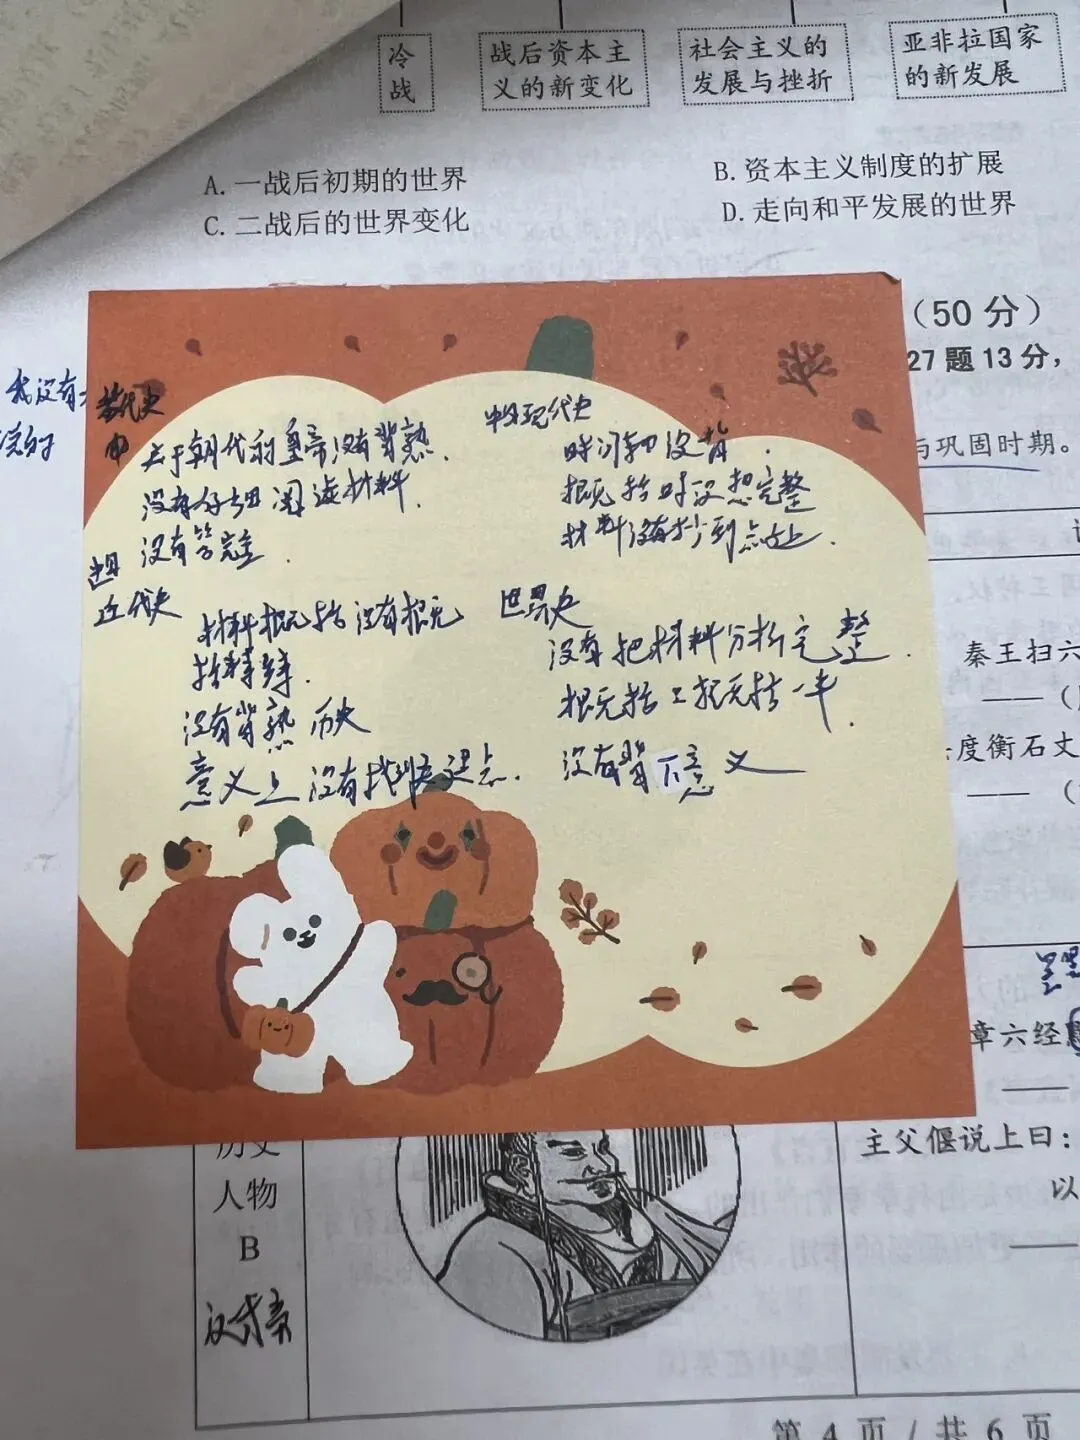 冷
战
战后资本主
义的新变化
社会主义的
发展与挫折
亚非拉国家
的新发展
A. 一战后初期的世界
B. 资本主义制度的扩展
C. 二战后的世界变化
D. 走向和平发展的世界
（50 分）
27 题 13 分，
我没有
与巩固时期。
代史
关于朝代和皇帝没有背熟.
没有仔细阅读材料.
没有答完.
近代史
材料概括没有概
括精.
没有背熟 历史
意义上没有找
中国现代史
时间轴没背.
概括时没想完整
材料没有抄到点处.
世界史
没有把材料分析完整.
概括上概括一半.
没有背下意义
秦王扫六
——（
度衡石丈
——（
章六经
——
主父偃说上曰：
以
——
历史
人物
B
汉武帝
第 4 页 / 共 6 页